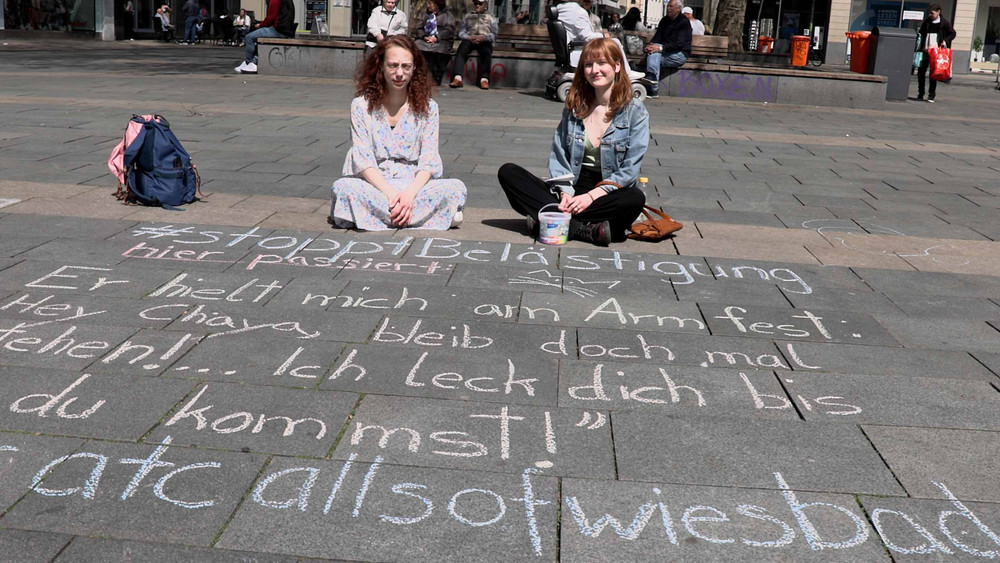 #stopptBelästigung
hier passiert:
Er hielt mich am Arm fest:
Hey Chaya bleib doch mal
stehen!.... Ich leck dich bis
du komms​t!"
catcallsofwiesbad